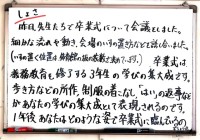 しょさ
昨日、先生たちで卒業式について会議をしました。
細かな流れや動き、会場のいすの置き方などを話し合いました。
(いすの置く位置は 体育館の
卒業式は、
義務教育を修了する3年生の学びの集大成です。
歩き方などの所作、制服の着こなし、「はい」の返事など
あなたの学びの集大成として表現されるのです。
1年後、あなたはどのような姿で卒業式に臨んでいるの